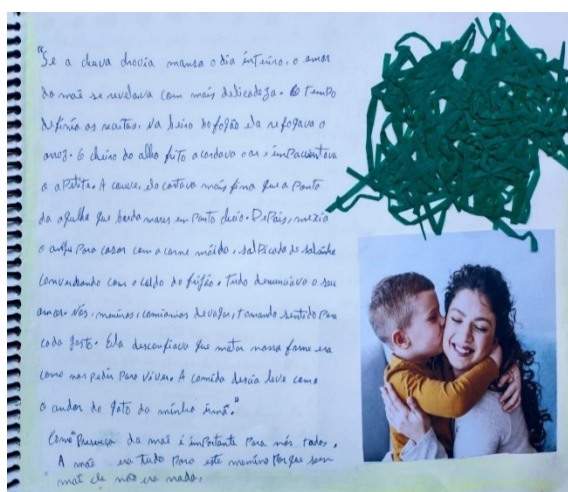 "Se a chuva chovia mansa o dia inteiro, o amor
da mãe se revelava com mais delicadeza. O tempo
definia as receitas. Na beira do fogão ela refogava o
arroz. O cheiro do alho frito acordava o ar e impacientava
o apetite. A couve, ela cortava mais fina que a ponta
da agulha que borda mares em ponto cheio. Depois, mexia
o angu para casar com a carne moída, salpicada de salsinha
conversando com o caldo do feijão. Tudo denunciava o seu
amor. Nós, meninos, comíamos devagar, tomando sentido para
cada gosto. Ela desconfiava que matar nossa fome era
como nos pedir para viver. A comida descia leve como
o andar do gato da minha irmã."
Como presença da mãe é importante para nós todos.
A mãe era tudo para este menino porque sem
mãe ele não era nada.